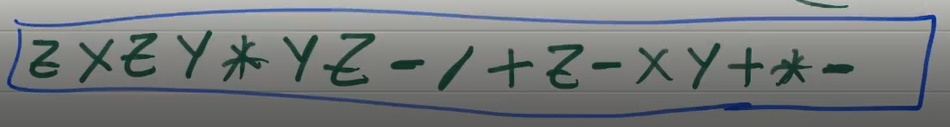 Z X Z Y * Y Z - / + Z - X Y + * -